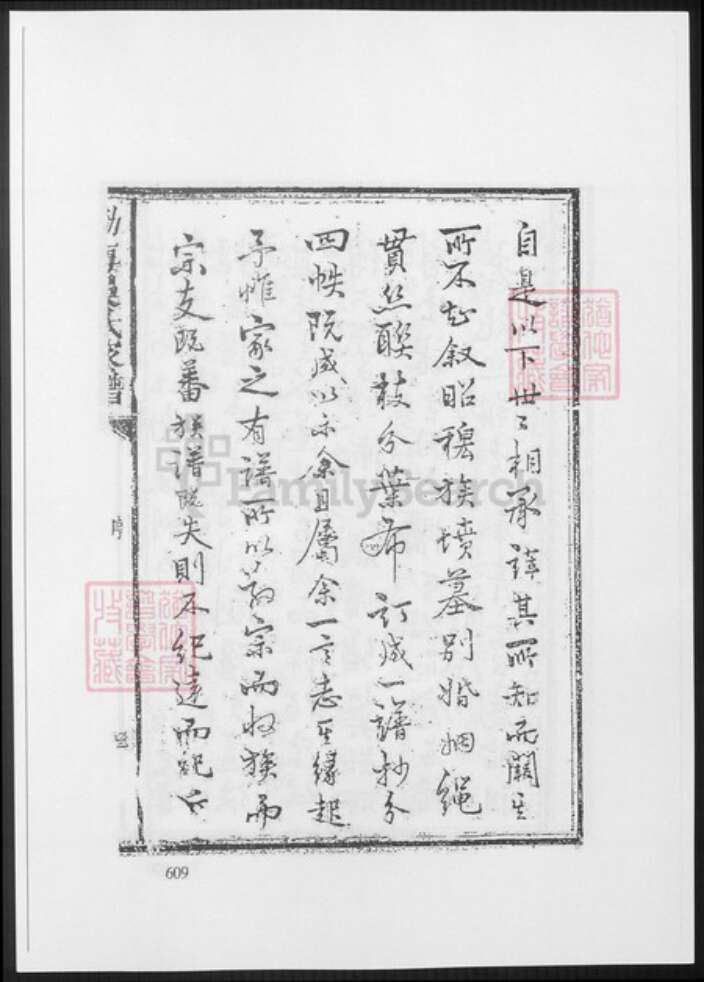 自是以下世〻相承詳其所知而闕其
所不知叙昭穆族墳墓別婚姻繩
貫丝聯枝分葉布訂成一譜抄分
四帙既成以示余且屬余一言志其緣起
予惟家之有譜所以敬宗而收族而
宗支既蕃族譜既失則不紀遠而紀近
氏支譜
FamilySearch
609